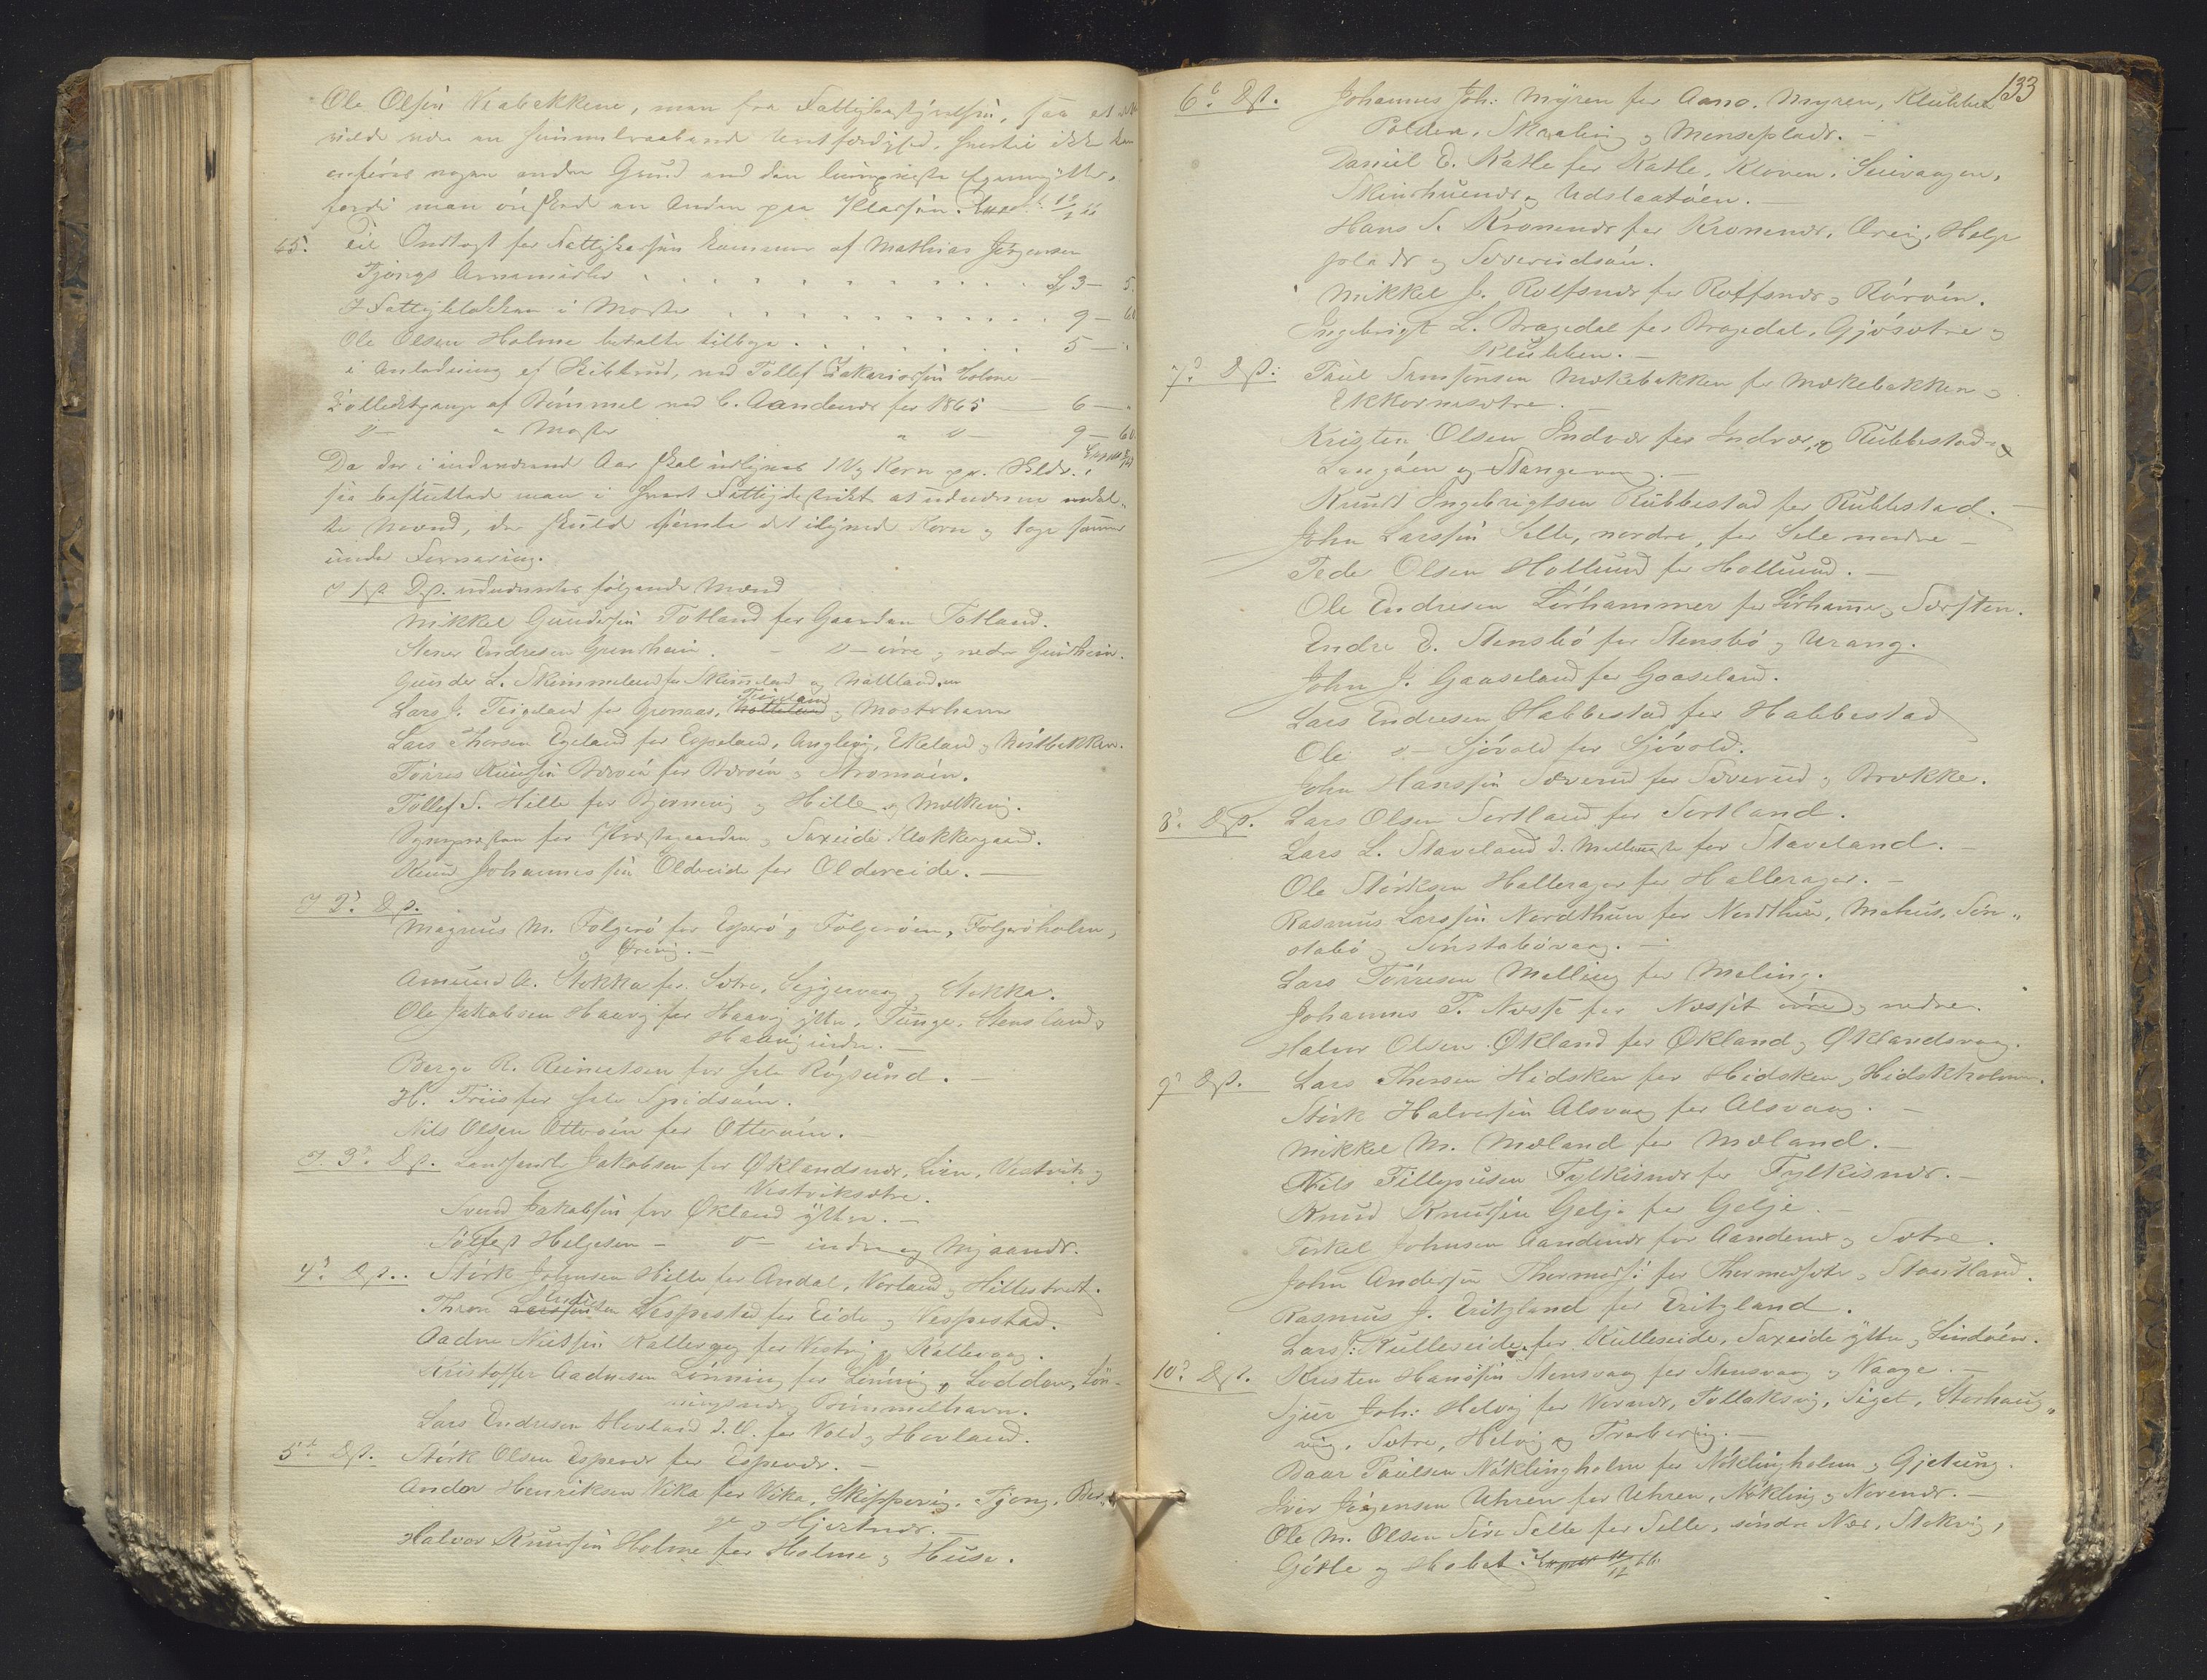 Ole Olsen Viabakkene, man fra Fattigbestyrelsen, saa at
vilde være en himmelraabende Uretfærdighed, hvortil ikke
anføres nogen anden Grund end den
fordi man ønskede en Anden paa Klassen.
65. Til Indtægt for Fattigkassen kommer af Mathias Jørgensen
Tjongs 3 – 5
I Fattigblokken i Moster 9 – 60
Ole Olsen Holme betalte tilbage 5 –
i Anledning af Skibbrud, ved Tollef Zakariassen Holme
af Bømmel ved C. Aandenæs for 1865 — 6 –
" – " Moster " " – 9 – 60
Da der i indeværende Aar skal udlignes Korn pr.
saa besluttede man i hvert Fattigdistrikt at udnævne
te Mænd, der skulde samle det Korn og tage samme
under Forvaring.
I 1ste Dst. udnævntes følgende Mænd
Mikkel Gundersen Totland for Gaarden Totland.
Stener Endresen Grindheim. – " – øvre og nedre Grindheim.
Gunder L. Skimmeland for Skimeland og Nattland
Lars J. Teigeland for Gronaas, Teigeland og Mosterhavn
Lars Thorsen Egeland for Espeland, Anglevig, Ekeland og Nøstbakken.
Tørres Knudsen Bærøen for Bærøen og Stromøen.
Tollef S. Hille for Bjørnevig og Hille og Melkevig.
for Præstegaarden og Saxeide Klokkergaard.
Knud Johannessen Oldereide for Oldereide. —
I 2d. Dst.
Magnus M. Folgerø for Esperø, Folgerøen, Folgerøholm,
og Ørevig. —
Amund A. Stokka for Sætre, Siggjarvaag, Stokka.
Ole Jakobsen Haavig for Haavig ytre, Tunge, Stensland og
Haavig indre. —
Berge R. Reinertsen for hele Røgsund. —
H. Friis for hele Spidsøen.
Nils Olsen Otterøen for Otterøen. —
I 3d. Dst. Lensmand Jakobsen for Øklandsnæs, Lien, Vestvik og
Vestviksætre.
Svend Jakobsen for Økland ytre. —
Sølfest Helgesen – " – indre og Mjaanæs.
4d. Dst. Størk Johnsen Hille for Andal, Vorland, Hillestvet.
Thron Endresen Vespestad for Eide og Vespestad.
Aadne Nielsen Kallevaag for Vestvig og Kallevaag.
Kristoffer Aadnesen Lønning for Lønning, Lodden, Løn-
ningsnæs, Bømmelhavn.
Lars Endresen Hovland d. Æ. for Vold og Hovland.
5te Dst. Størk Olsen Espenæs for Espenæs. —
Ander Henriksen Vika for Vika, Skippervig, Tjong, Ber-
ge og Hjertnæs. —
Halvor Knudsen Holme for Holme og Huse.
133
6te Dst. Johannes Joh: Myren for Aano, Myren, Klubben
Polden, Skaalevig og Mensepladr. —
Daniel D. Katle for Katle, Kloven, Seivaagen,
Skinhuende og Udslaatøen. —
Hans S. Kronenæs for Kronenæs, Ørevig, Helge
plads og Sævereidsøen.
Mikkel J. Rolfsnæs for Rolfsnæs, Rørøen.
Ingebrigt L. Bragedal for Bragedal, Gjøsætre og
Klubben. —
7d. Dst: Paul Samsonsen Mækebakken for Mækebakken og
Ekkornesætre. —
Kristen Olsen Indvær for Indvær, og Rubbestad
Langøen og Stangevaag. —
Knudt Ingebrigtsen Rubbestad for Rubbestad. —
John Larssen Selle, nordre, for Sele nordre —
Peder Olsen Hollund for Hollund. —
Ole Endresen Lørhammer for Lørhammer, Særsten.
Endre E. Stensbø for Stensbø og Urang.
John J. Gaaseland for Gaaseland.
Lars Endresen Habbestad for Habbestad
Ole " – Sjøvold for Sjøvold.
John Hanssen Sæverud for Sæverud og Brække.
8d. Dst. Lars Olsen Sortland for Sortland.
Lars L. Staveland d. Mellemste for Staveland. —
Ole Størksen Hallerager for Hallerager. —
Rasmus Larssen Nordthun for Nordthun, Mehus, Søn„
stabø og Sønstabøvaag. —
Lars Tørresen Melling for Meling.
Johannes P. Næsse for Næsset øvre og nedre.
Halvor Olsen Økland for Økland, Øklandsvaag.
9d. Dst. Lars Thorsen Hidsken for Hidsken, Hidskholmen.
Størk Halvorsen Alsvaag for Alsvaag. —
Mikkel M. Mæland for Mæland. —
Nils Fillipusen Fylkisnæs for Fylkisnæs. —
Knud Knudsen Gelje for Gelje. —
Torkel Johnsen Aandenæs for Aandenæs og Sætre.
John Andersen Thormods: for Thormodsæter, Stautland.
Rasmus J. Eritzland for Eritzland.
Lars J. Kulleseide for Kulleseide, Saxeide ytre, Lindøen.
10d. Dst. Kristen Hanssen Stensvaag for Stensvaag og Vaage. —
Sjur Joh: Helvig for Vornæs, Tollaksvig, Siget, Storhaug„
vig, Sætre, Helvig og Trøbervig. —
Baar Paulsen Nøklingholm for Nøklingholm, Gjetung.
Iver Jørgensen Uhren for Uhren, Nøkling, Norenæs. —
Ole M. Olsen Søre Selle for Selle, søndre Næs, Stokvig,
Gøtle og Hobet.